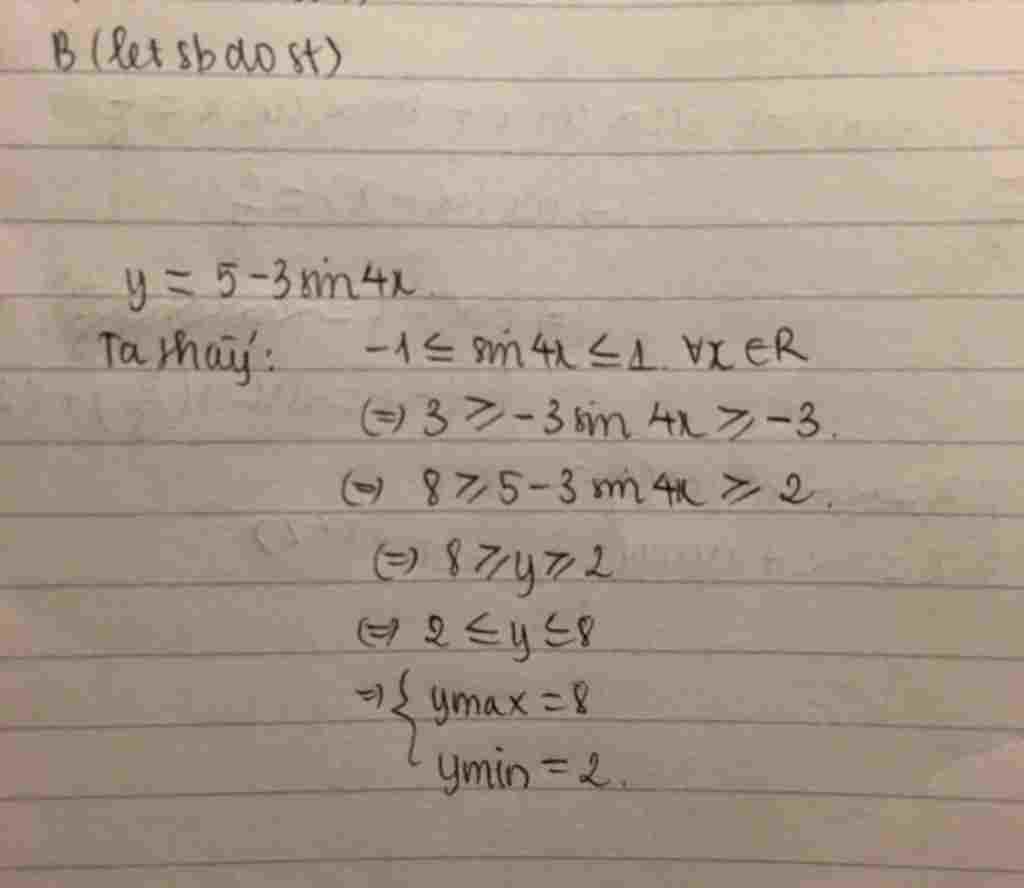 B (let sb do st)
y = 5 - 3 sin 4x.
Ta thấy: -1 ≤ sin 4x ≤ 1. ∀x ∈ R
(=) 3 ≥ -3 sin 4x ≥ -3.
(=) 8 ≥ 5 - 3 sin 4x ≥ 2.
(=) 8 ≥ y ≥ 2
(=) 2 ≤ y ≤ 8
=) { ymax = 8
ymin = 2.